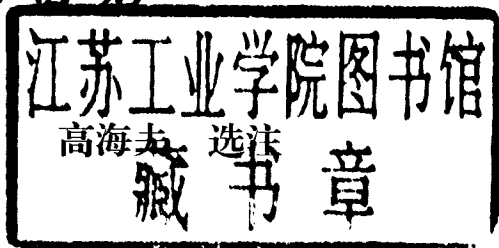 江苏工业学院图书馆
高海夫 选注
藏书章